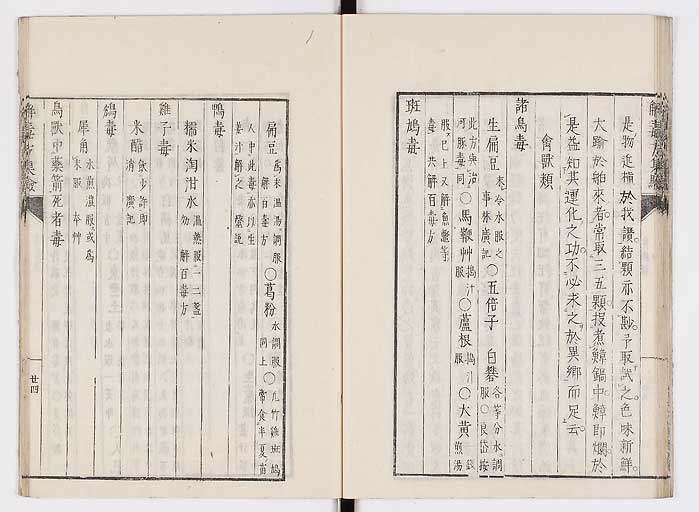 是物近種於我讃結顆亦不尠予取試之色味新鮮
大踰於舶來者常取三五顆投煮鱆鍋中鱆即爛於
是益知其運化之功不必求之於異鄉而足云
禽獸類
諸鳥毒
生扁豆末冷水服之事林廣記〇五倍子 白礬各等分水調服〇良岱按
此方與治河豚毒同〇馬鞭艸搗汁服〇蘆根搗汁飲服〇大黄煎湯
服已上又解魚鱉等
毒共解百毒方
斑鳩毒
扁豆爲末温湯調服解百毒方〇葛粉水調服同上〇凡竹雞斑鳩常食半夏苗
人中此毒亦以生姜汁解之
鴨毒
糯米淘泔水温藥服一二盞効 解百毒方
雞子毒
米醋飲少許即消 廣記
鴆毒
犀角水煎濃服或爲末服 本艸
鳥獸中藥箭死者毒
解毒方集驗
廿四